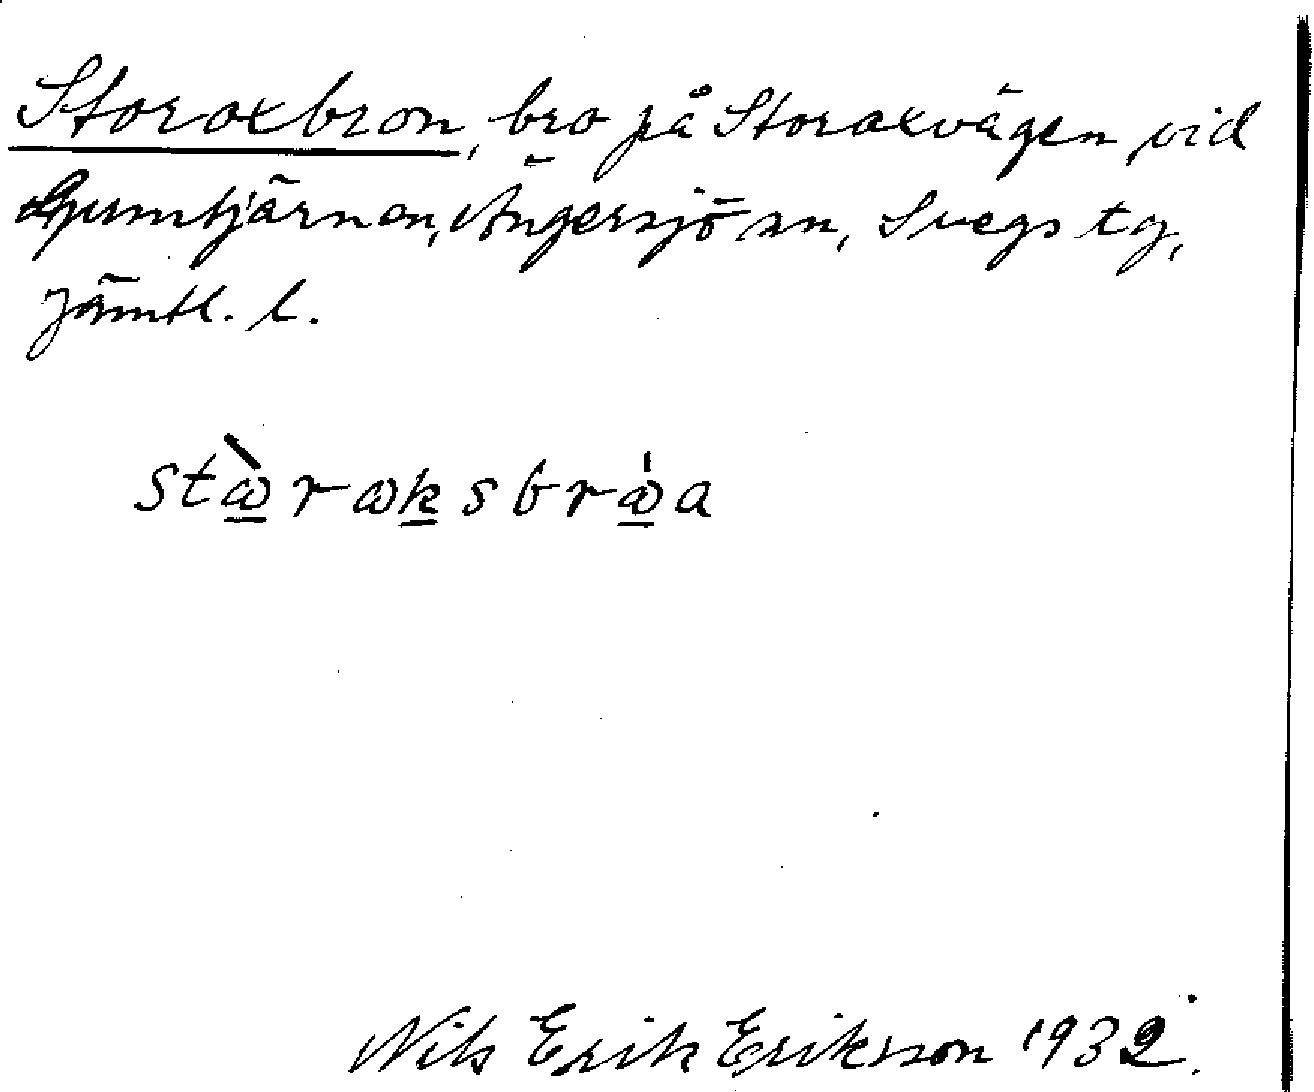 Storoxbron, bro på Storoxvägen vid
Ljumtjärnen, Ängersjö sn, Svegs tg,
Jämtl. l.
stꞷ̀rꞷksbrꞷ́a
Nils Erik Eriksson 1932.